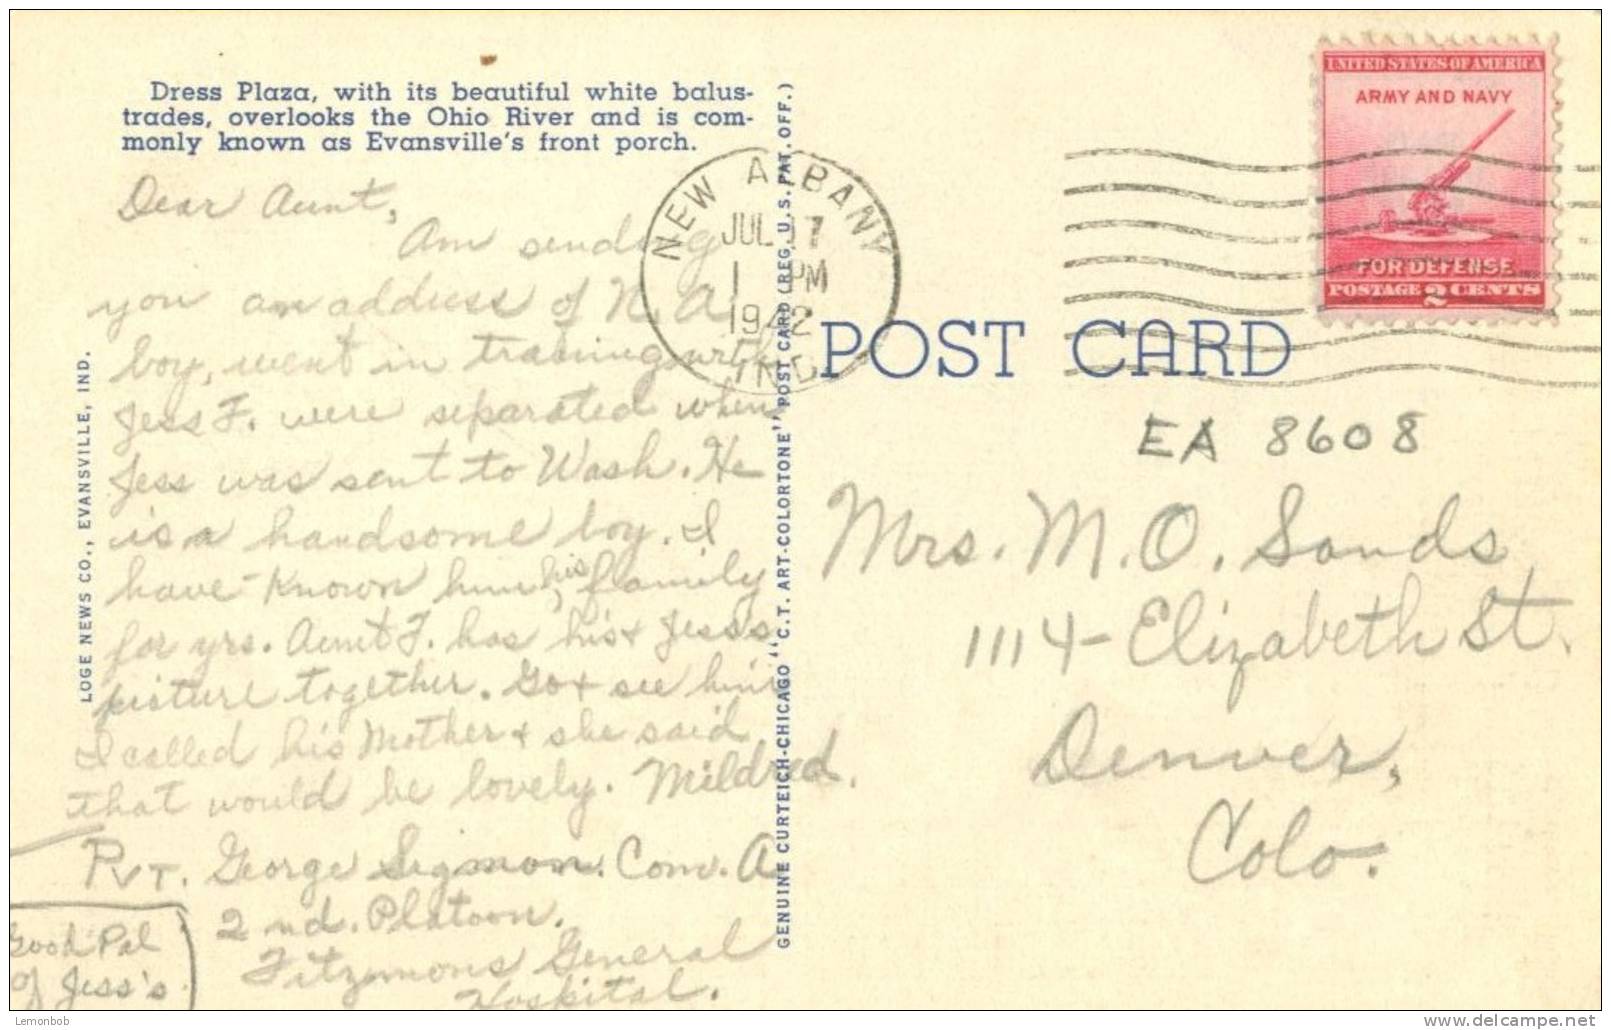 Dress Plaza, with its beautiful white balus-
trades, overlooks the Ohio River and is com-
monly known as Evansville's front porch.
Dear Aunt,
Am sending
you an address of N. A.
boy, went in training with
Jess F. were separated when
Jess was sent to Wash. He
is a handsome boy. I
have known him, his family
for yrs. Aunt F. has his & Jess's
picture together. Go & see him
I called his Mother & she said
that would be lovely. Mildred.
Pvt. George Sigmon. Com. A
2nd. Platoon.
Fitzmons General
Hospital.
Good Pal
of Jess's
LOGE NEWS CO., EVANSVILLE, IND.
GENUINE CURTEICH-CHICAGO "C.T. ART-COLORTONE" POST CARD (REG. U.S. PAT. OFF.)
NEW ALBANY
JUL 17
1 PM
1942
IND.
UNITED STATES OF AMERICA
ARMY AND NAVY
FOR DEFENSE
POSTAGE 2 CENTS
POST CARD
EA 8608
Mrs. M. O. Sands
1114- Elizabeth St.
Denver,
Colo.
Lemonbob
www.delcampe.net